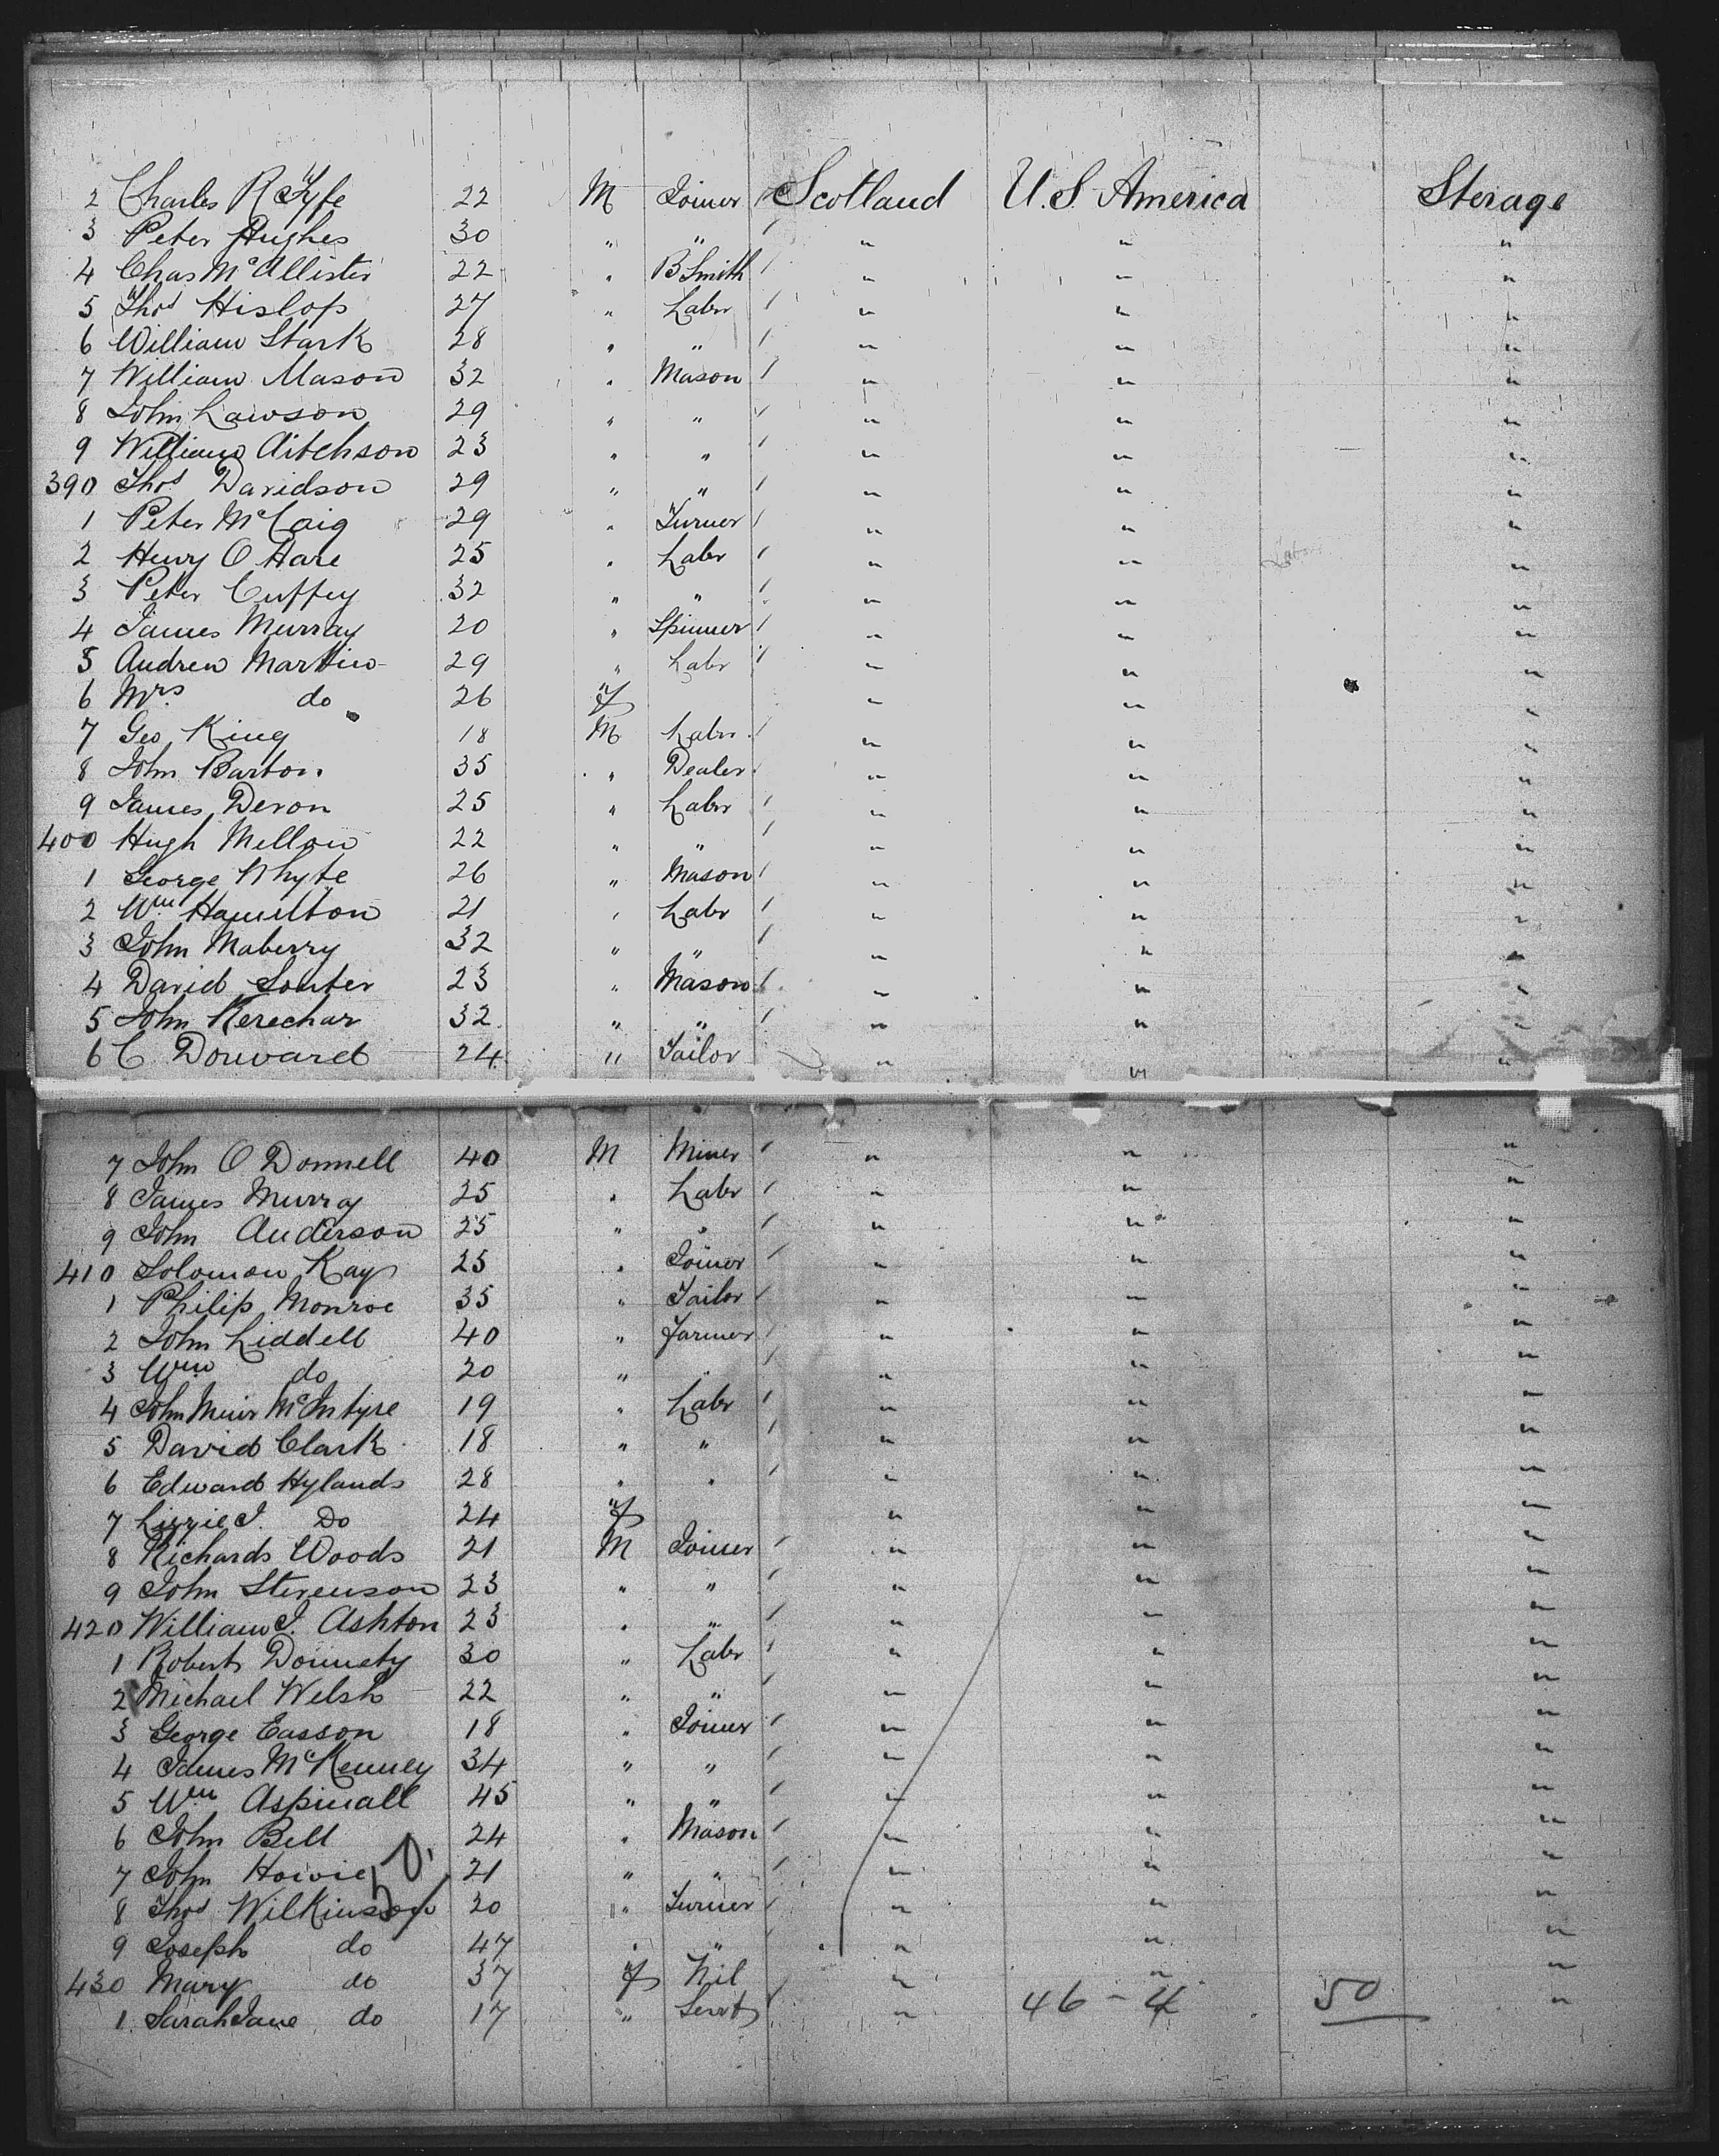 2 Charles R Fyfe 22 M Joiner Scotland U.S. America Sterage
3 Peter Hughes 30 " " " " "
4 Chas McAllister 22 " B Smith " " "
5 Thos Hislop 27 " Labr " " "
6 William Stark 28 " " " " "
7 William Mason 32 " Mason " " "
8 John Lawson 29 " " " " "
9 William Aitchson 23 " " " " "
390 Thos Davidson 29 " " " " "
1 Peter McCaig 29 " Turner " " "
2 Henry O Hare 25 " Labr " " "
3 Peter Cuffey 32 " " " " "
4 James Murray 20 " Spinner " " "
5 Andrew Martin 29 " Labr " " "
6 Mrs do 26 f " " "
7 Geo King 18 M Labr " " "
8 John Barton 35 " Dealer " " "
9 James Devon 25 " Labr " " "
400 Hugh Mellon 22 " " " " "
1 George Whyte 26 " Mason " " "
2 Wm Hamilton 21 " Labr " " "
3 John Maberry 32 " " " " "
4 David Souter 23 " Mason " " "
5 John Kerechar 32 " " " " "
6 C Douward 24 " Tailor " " "
7 John O Donnell 40 M Miner " " "
8 James Murray 25 " Labr " " "
9 John Anderson 25 " " " " "
410 Solomon Kay 25 " Joiner " " "
1 Philip Monroe 35 " Tailor " " "
2 John Liddell 40 " Farmer " " "
3 Wm do 20 " " " " "
4 John Muir McIntyre 19 " Labr " " "
5 David Clark 18 " " " " "
6 Edward Hylands 28 " " " " "
7 Lizzie J. Do 24 f " " "
8 Richards Woods 21 M Joiner " " "
9 John Stevenson 23 " " " " "
420 William J. Ashton 23 " " " " "
1 Robert Donnety 30 " Labr " " "
2 Michael Welsh 22 " " " " "
3 George Easson 18 " Joiner " " "
4 James McKenney 34 " " " " "
5 Wm Aspinall 45 " " " " "
6 John Bell 24 " Mason " " "
7 John Howie 21 " " " " "
8 Thos Wilkinson 20 " Turner " " "
9 Joseph do 47 " " " " "
430 Mary do 37 f Nil " " "
1 Sarah Jane do 17 " Servt " 46 - 4 50 "